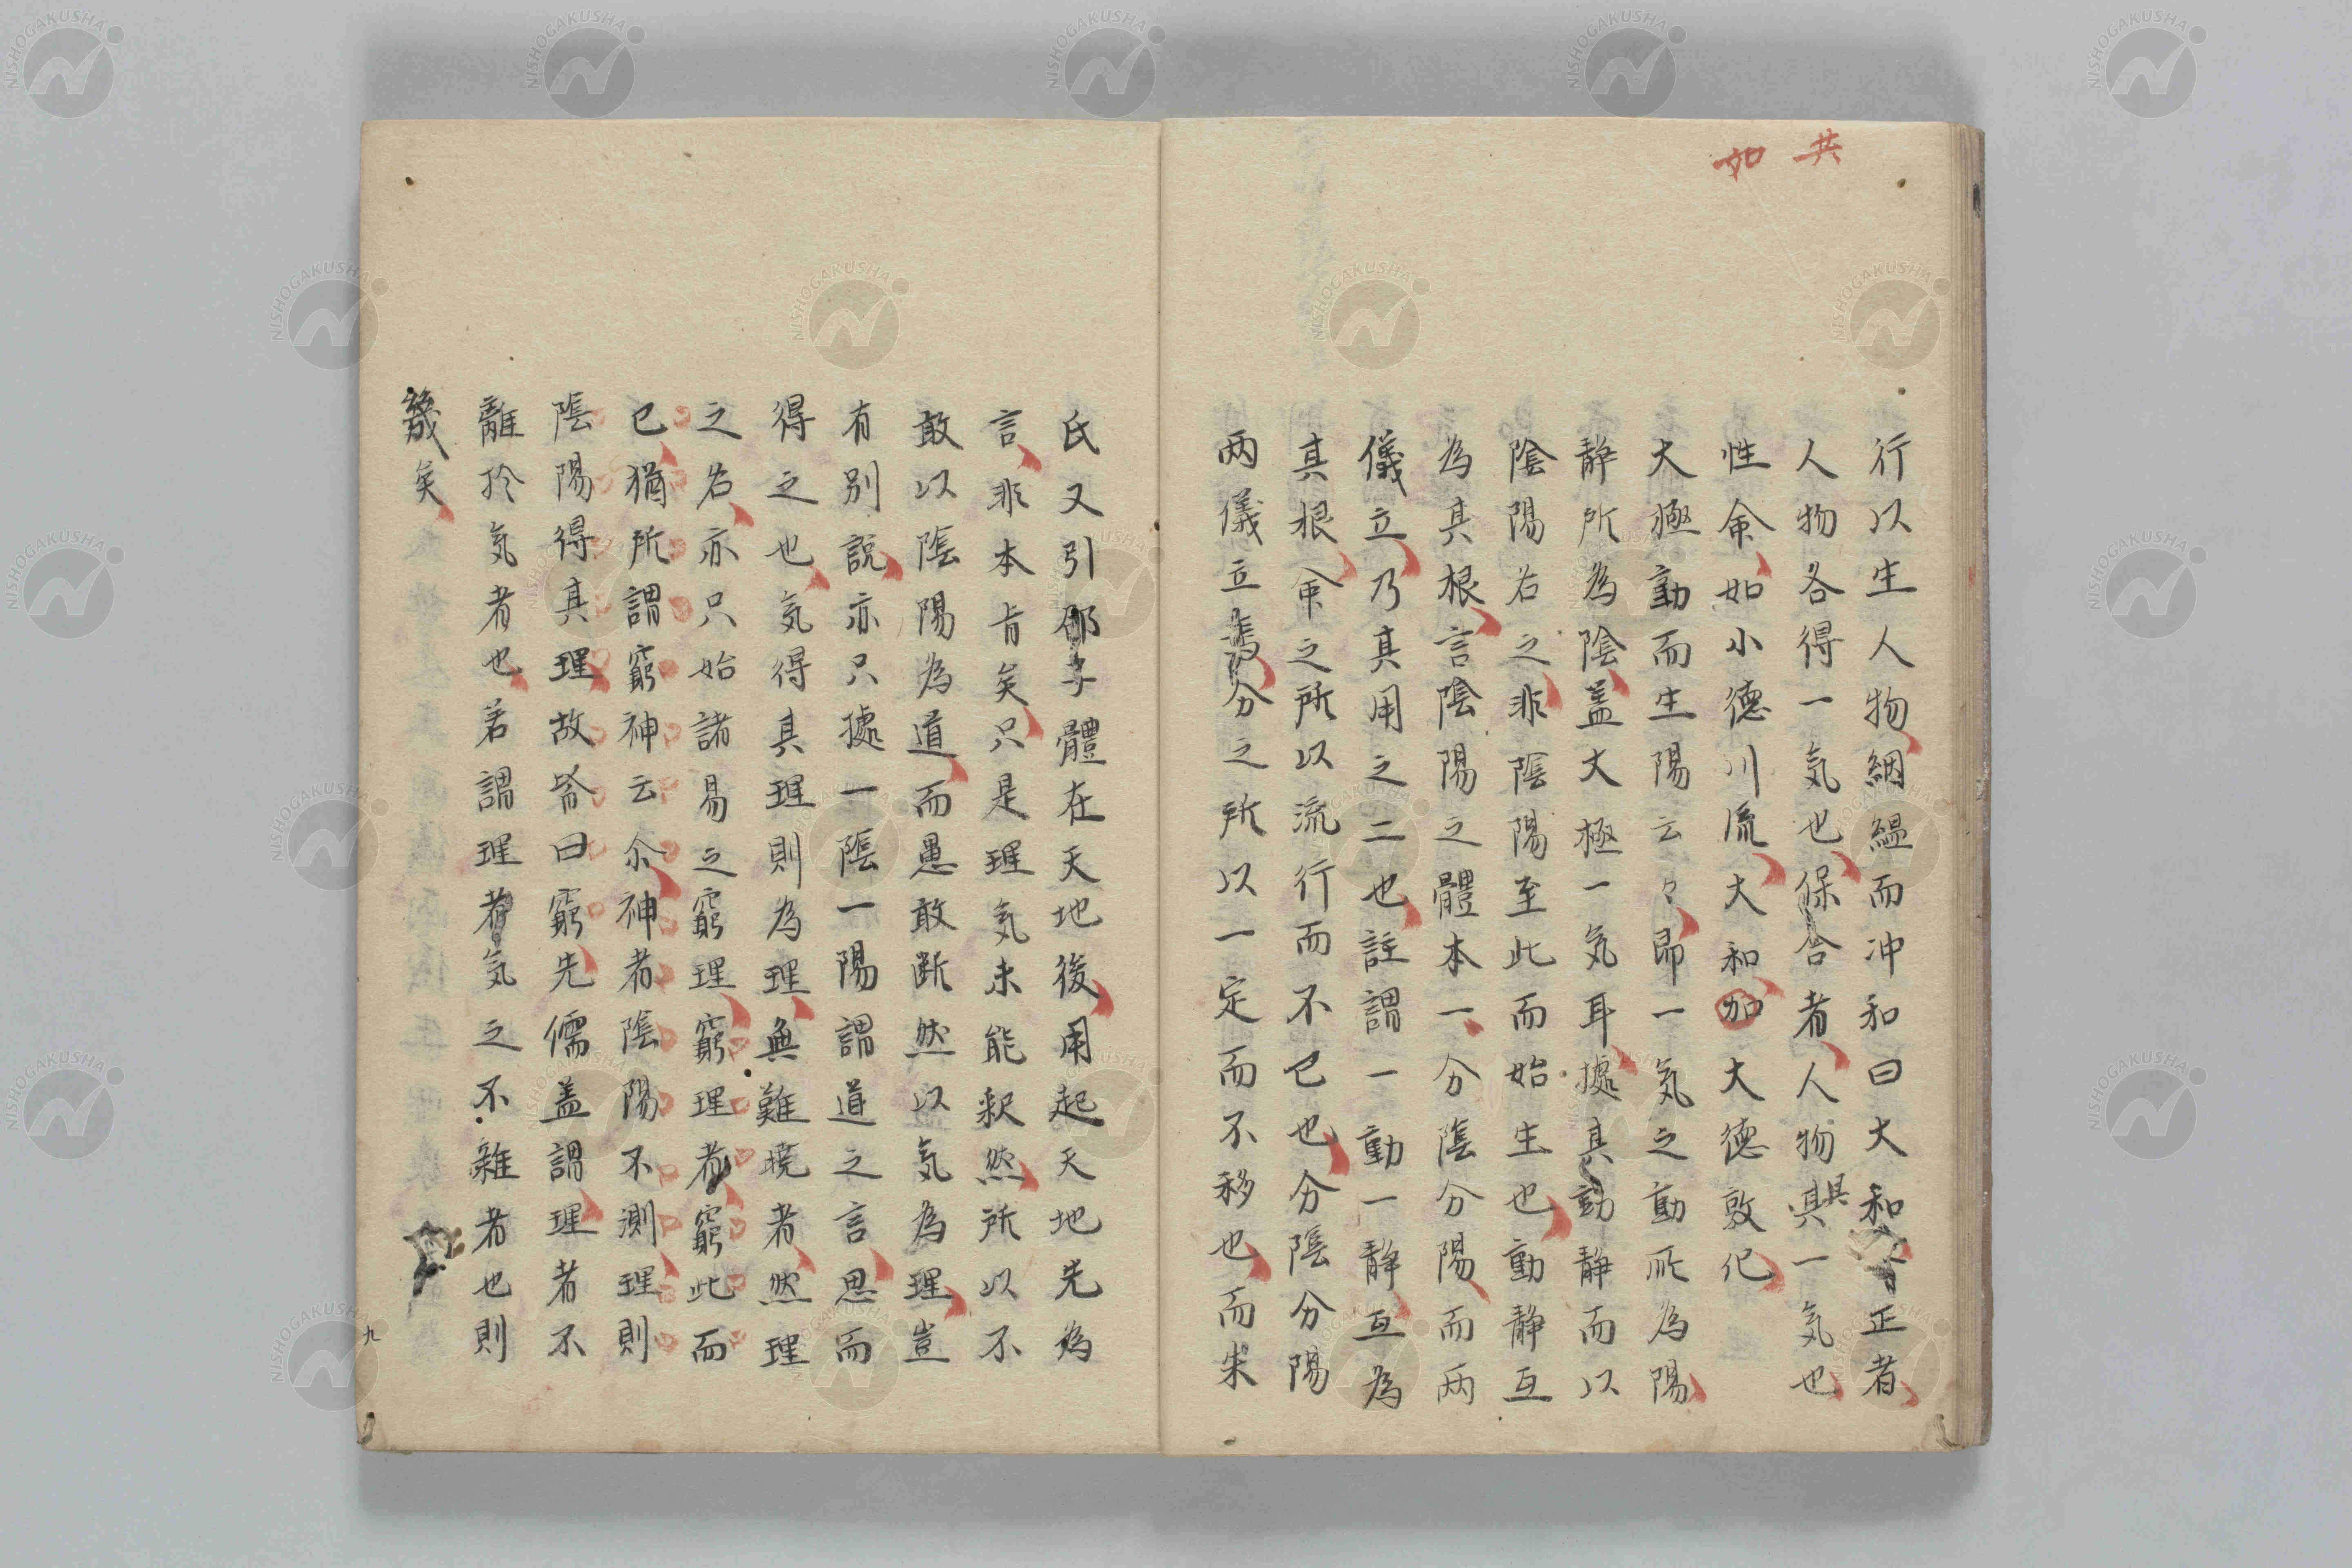 共
如
行以生人物絪緼而冲和曰大和正者
人物各得一気也保合者人物具其一気也
性命如小德川流大和加大德敦化
大極動而生陽云々即一気之動所為陽
静所為陰蓋大極一気耳據其動静而以
陰陽名之非陰陽至此而始生也動静互
為其根言陰陽之體本一分陰分陽而兩
儀立乃其用之二也註謂一動一静互為
其根命之所以流行而不已也分陰分陽
两儀立焉分之所以一定而不移也而朱
氏又引邵子體在天地後用起天地先為
言非本旨矣只是理気未能釈然所以不
敢以陰陽為道而愚敢断然以気為理豈
有別説亦只據一陰一陽謂道之言思而
得之也気得其理則為理無難曉者然理
之名亦只始諸易之窮理窮理者窮此而
已猶所謂窮神云尒神者陰陽不測理則
陰陽得其理故啻曰窮先儒蓋謂理者不
離於気者也若謂理者気之不雜者也則
幾矣
九
NISHOGAKUSHA